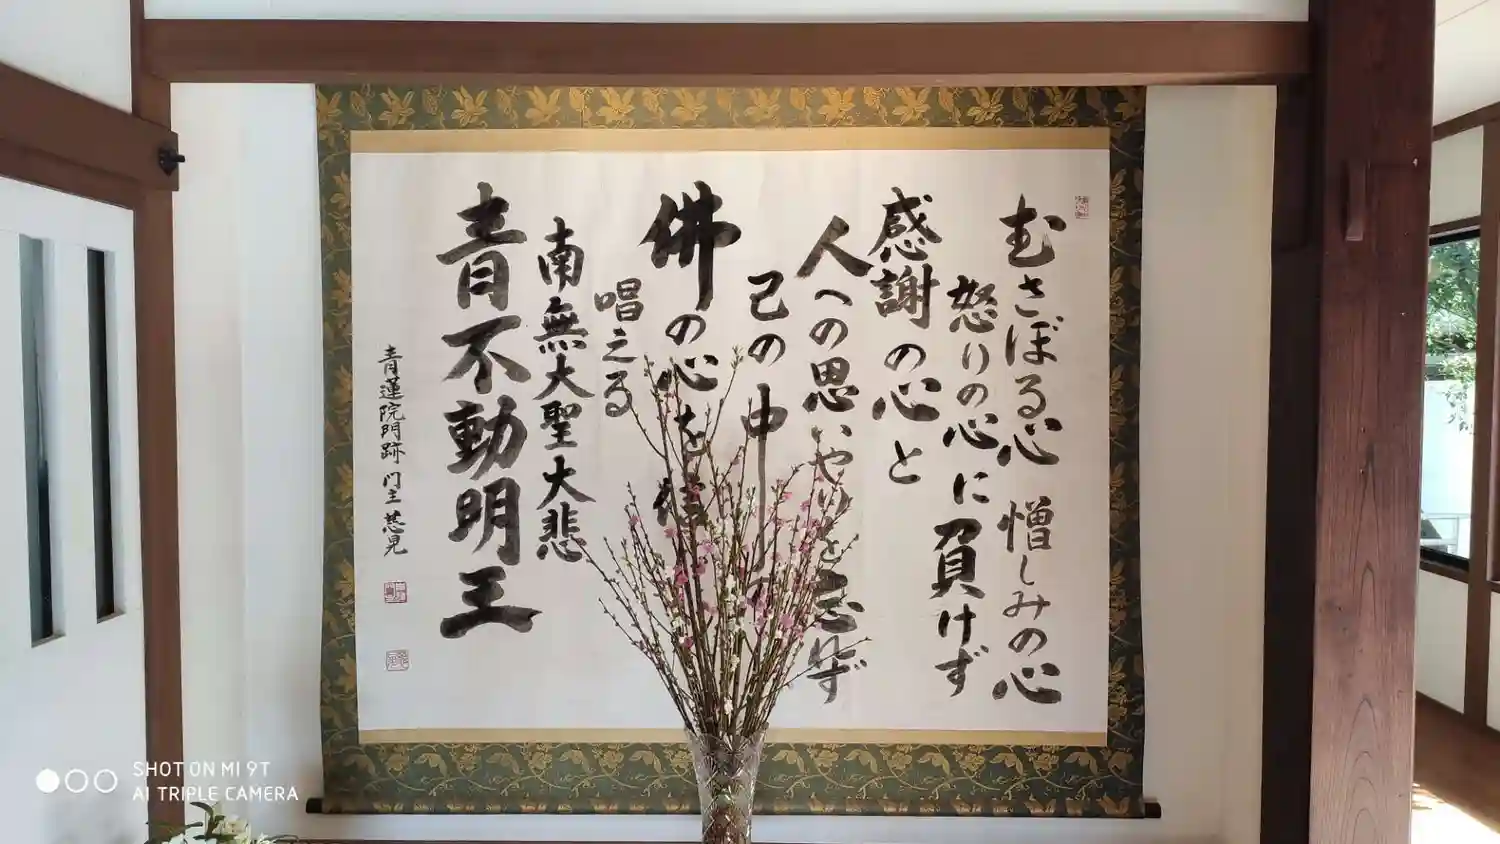 むさぼる心 憎しみの心
怒りの心に負けず
感謝の心と
人への思いやりを忘れず
己の中
佛の心を
唱える
南無大聖大悲
青不動明王
青蓮院門跡 門主 慈晃
SHOT ON MI 9T
AI TRIPLE CAMERA